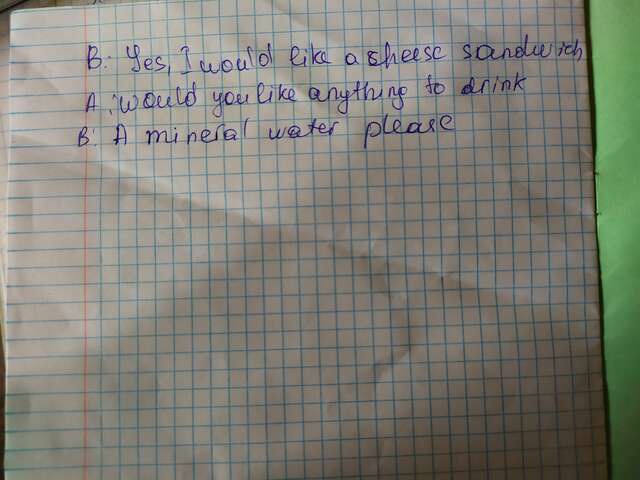 B: Yes, I would like a cheese sandwich
A: would you like anything to drink
B: A mineral water please